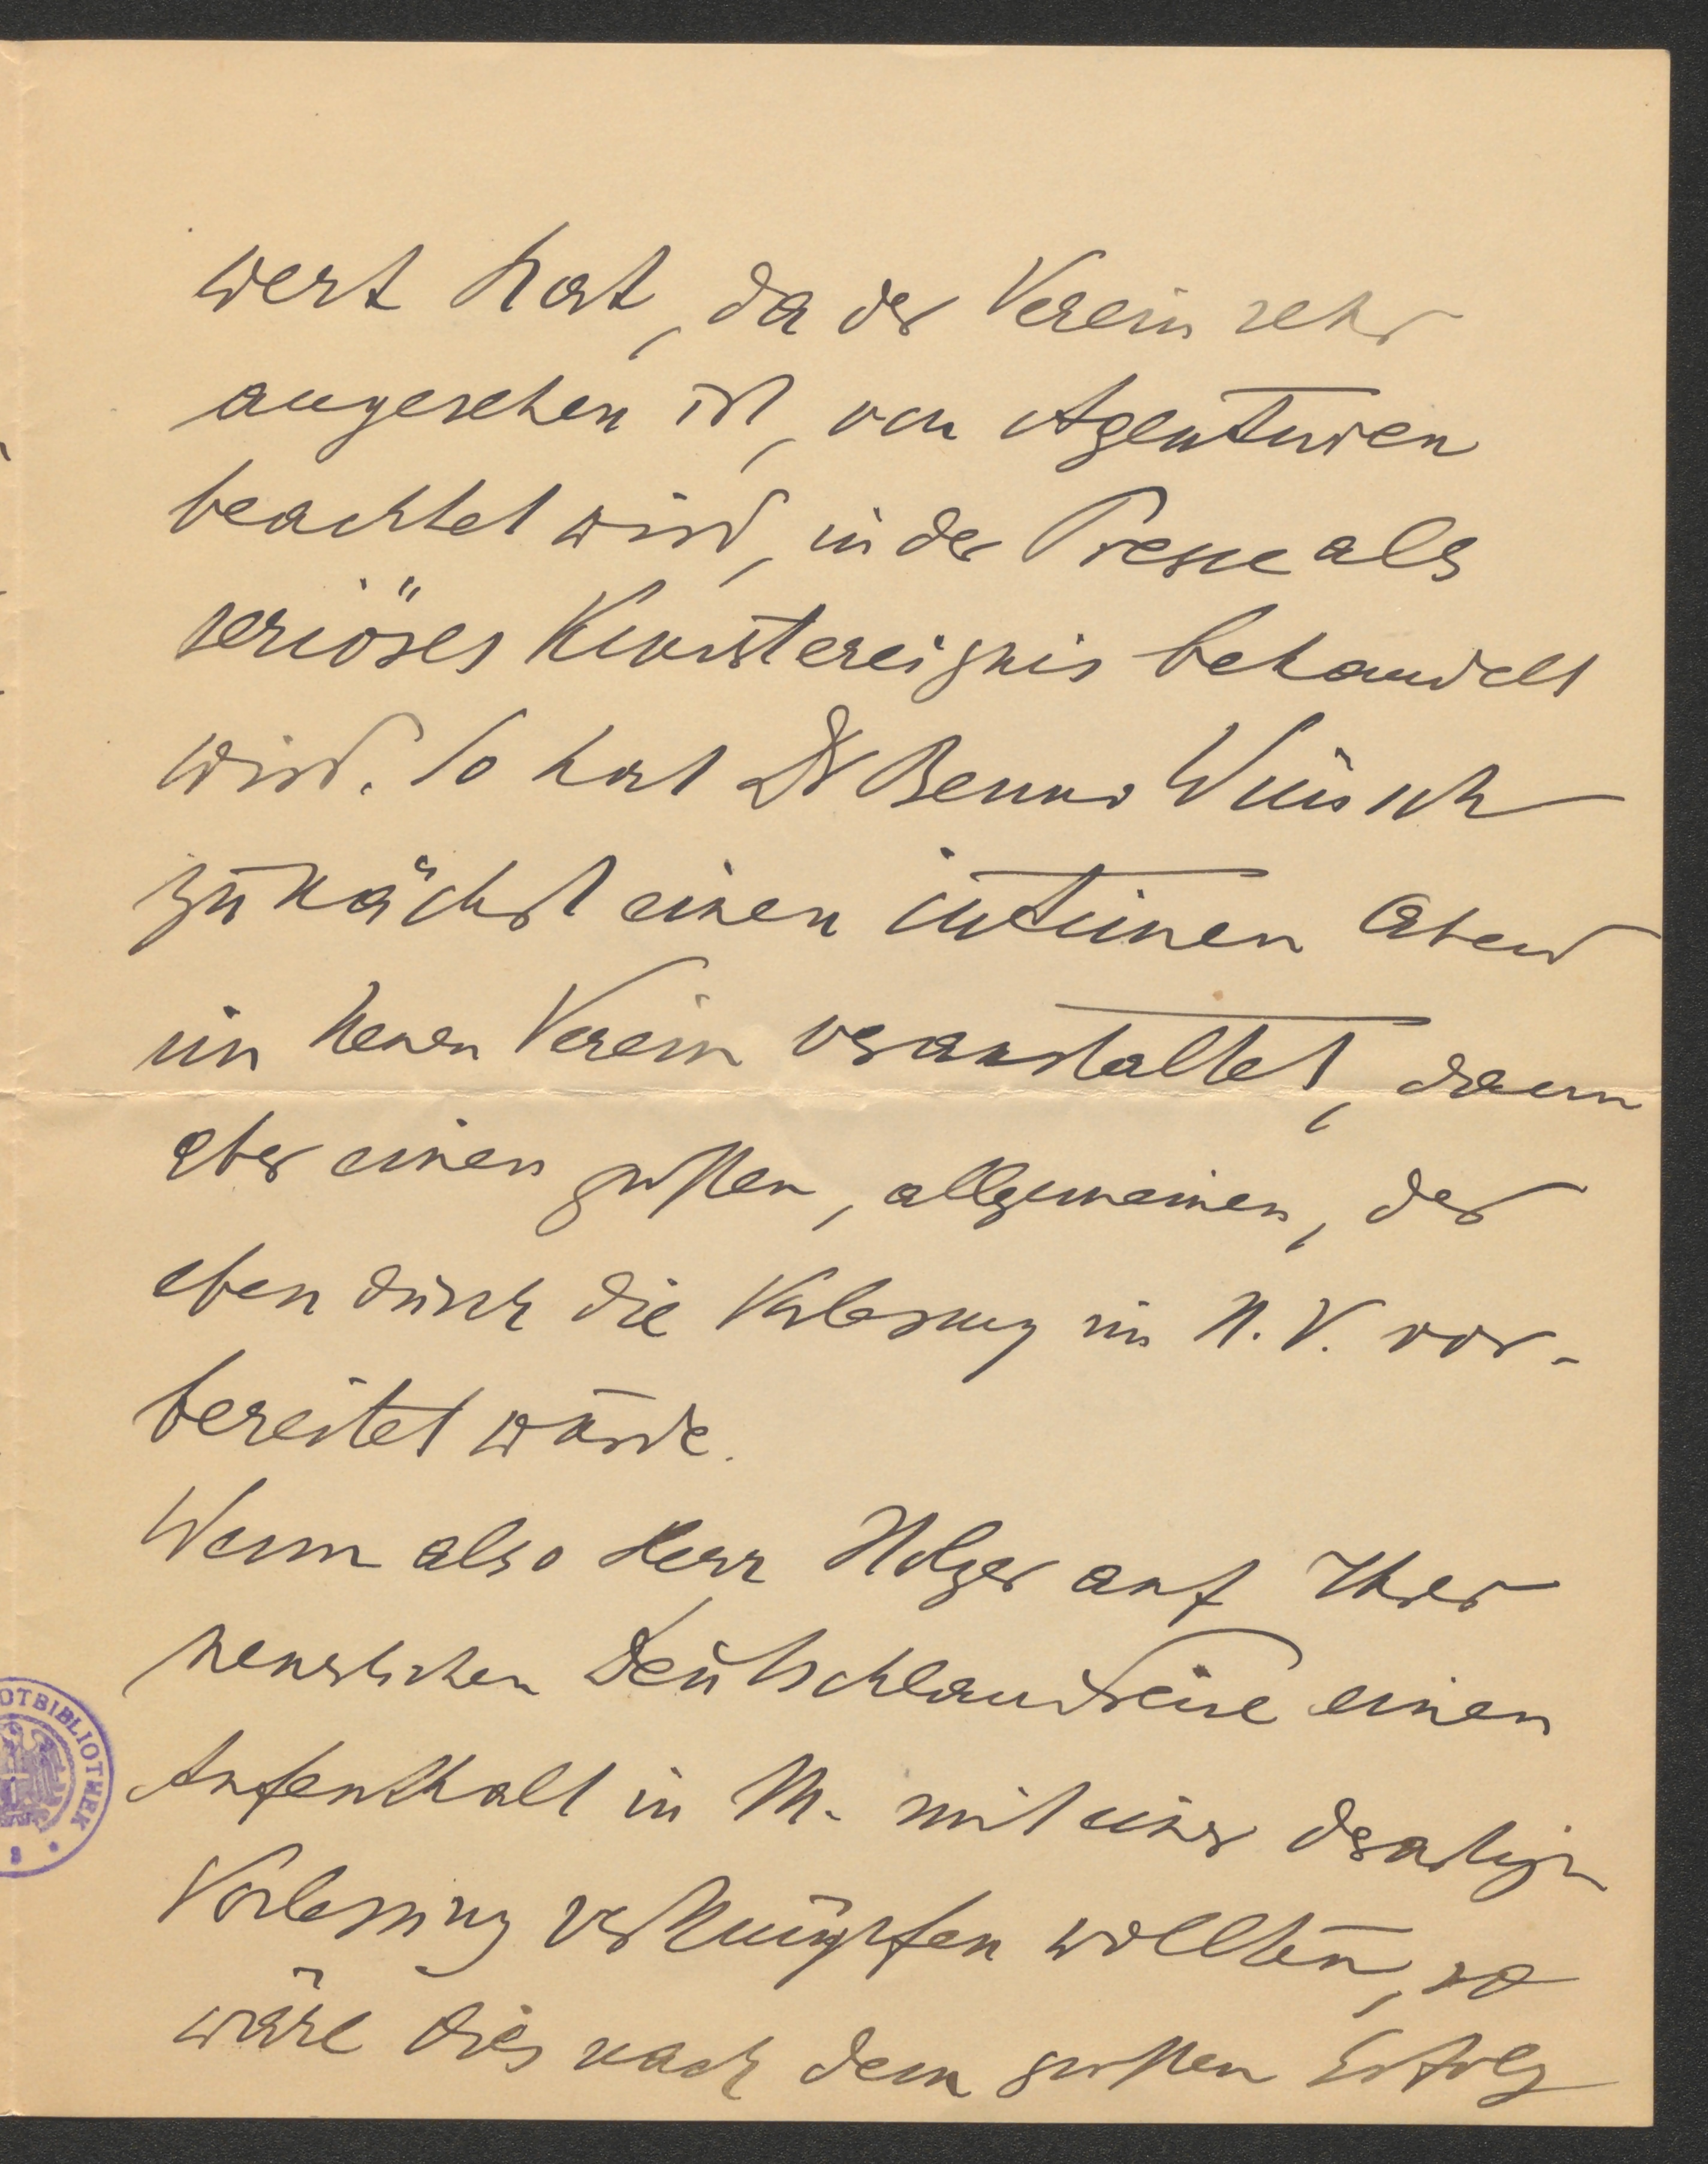 wert hat, da der Verein sehr
angesehen ist, von Agenturen
beachtet wird, in der Presse als
seriöses Kunstereignis behandelt
wird. So hat Dr Benno
zunächst einen intimen Abend
im Neuen Verein veranstaltet, dann
aber einen großen, allgemeinen, der
eben durch die Vorlesung im N. V. vor-
bereitet wurde.
Wenn also Herr Holger auf Ihrer
Deutschlandreise einen
Aufenthalt in M. mit einer derartigen
Vorlesung verknüpfen wollten, so
wäre dies nach dem großen Erfolg